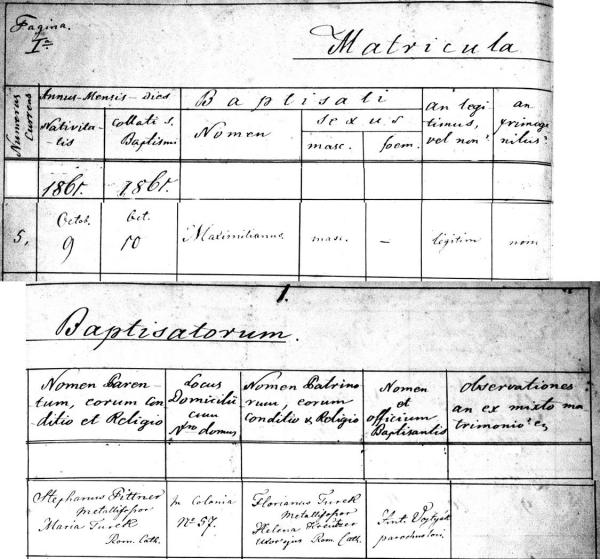 Pagina.
I.
Matricula
Numerus Currens
Annus-Mensis-Dies
Baptisati
Nativita-
tis
collati S.
Baptismi
Nomen
Sexus
masc.
foem.
an legi
timus,
vel non?
an
primoge
nitus?
1861.
1861.
5.
Octob.
9
Oct.
10
Maximilianus.
masc.
—
legitim
non
1.
Baptisatorum.
Nomen Paren-
tum, eorum Con
ditio et Religio
Locus
Domicilii
cum
Nro domus
Nomen Patrino
rum, eorum
Conditio & Religio
Nomen
et
officium
Baptisantis
observationes
an ex mixto ma
trimonio? &
Stephanus Pittner
Metallifosor
Maria Turek
Rom. Cath.
in Colonia
No 57.
Florianus Turek
Metallifosor
Helena
Uxor ejus Rom. Cath.
Ant.
parochus loci.